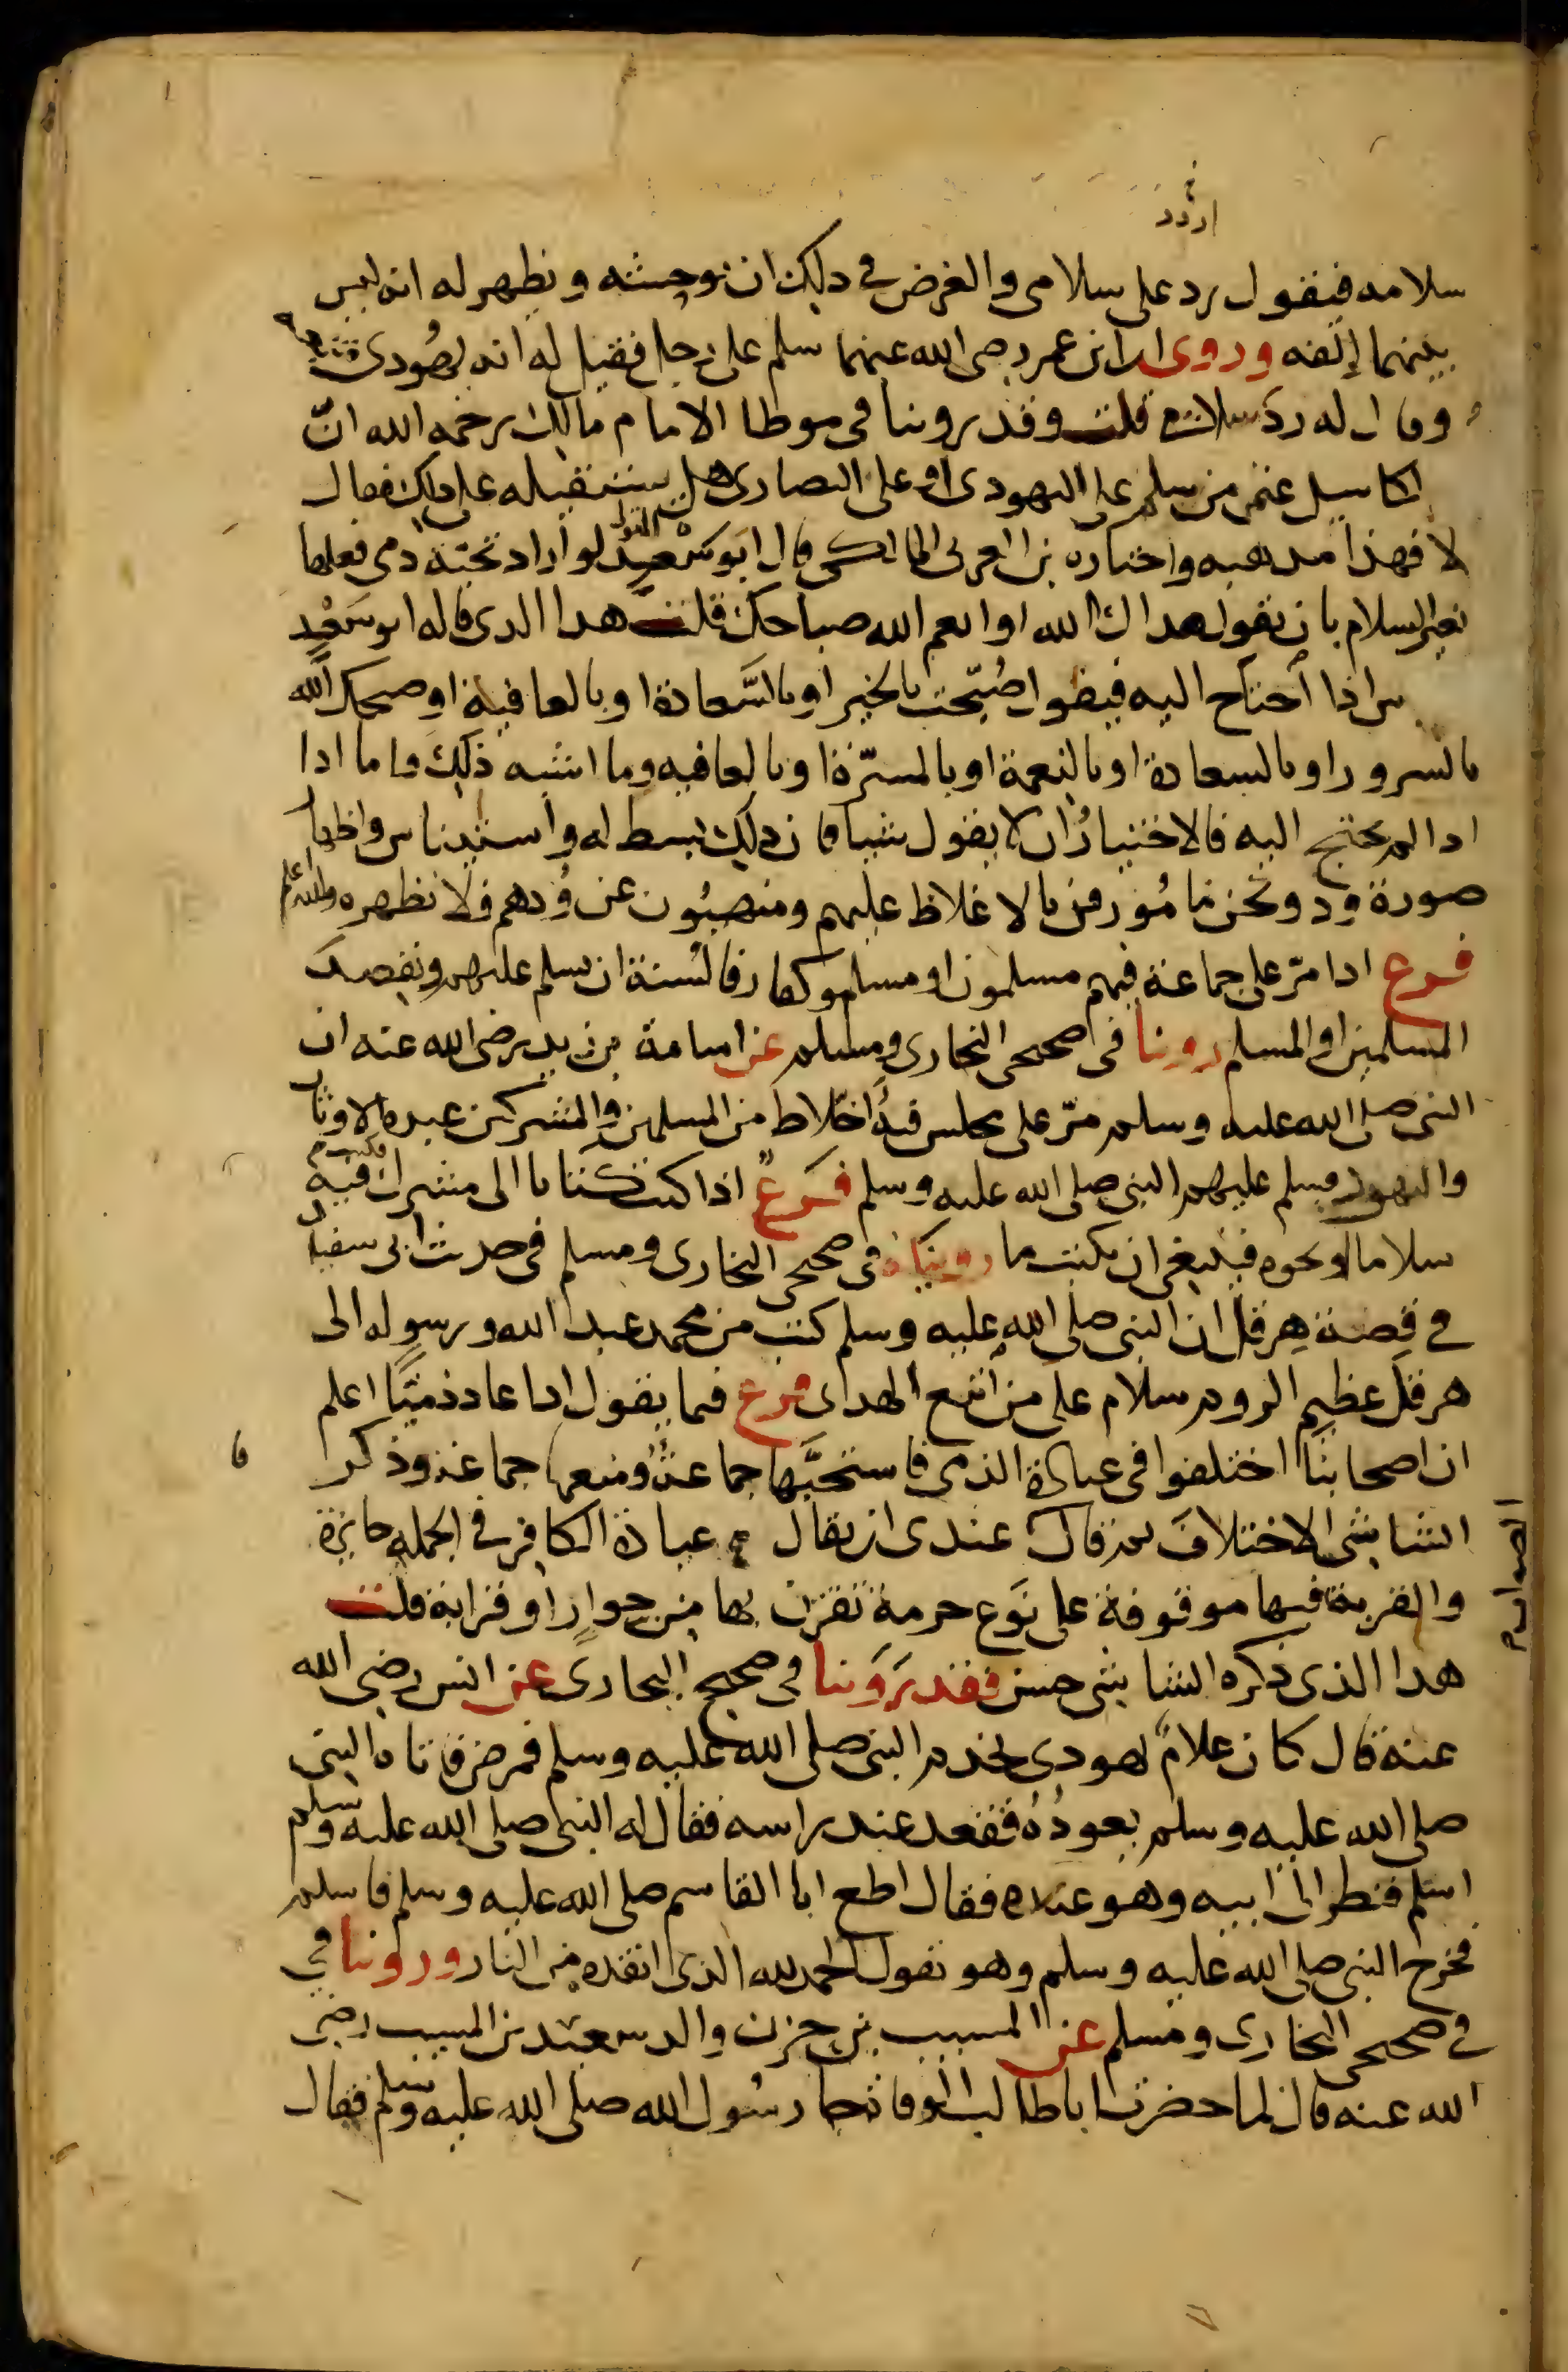 اردد
سلامه فيقول رد على سلامى والغرض فى ذلك ان نوحشه ونظهر له انه ليس
بينهما إلفه وروى ان ابن عمر رضى الله عنهما سلم على رجل فقيل له انه يهودى فتبعه
وقال له رد سلامى قلت وقد روينا فى موطا الامام مالك رحمه الله انّ
مالكا سيل عنمن سلم على اليهودى او على النصارى هل يستقيله على ذلك فقال
لا فهذا مذهبه واختاره بن العربى المالكى قال ابو سعيد المتولى لو اراد تحيّة ذمى فعلها
بغير السلام بان يقول هداك الله او انعم الله صباحك قلت هذا الذى قاله ابو سَعْيدٍ
باس اذا أحتاج اليه فيقول صُبِّحت بالخير او بالسَّعادة او بالعافية او صبحك الله
بالسرور او بالسعادة او بالنعمة او بالمسرّة او بالعافيه وما اشبه ذلك واما اذا
اذا لم يحتج اليه فالاختيارُ ان لا يقول شيا فان ذلك بسط له وايناس واظهار
صورة ود ونحن مامُورون بالاغلاظ عليهم ومنهيُّون عن وُدهم فلا نظهره والله اعلم
فرع اذا مرّ على جماعة فيهم مسلمون او مسلم وكفار فالسُنة ان يسلم عليهم ويقصد
المسلمين او المسلم روينا فى صحيحى البخارى ومسلم عن اسامة بن زيد رضى الله عنه ان
النبى صلى الله عليه وسلم مرّ على مجلس فيه اخلاط من المسلمين والمشركين عبدة الاوثان
واليهود فسلم عليهم النبى صلى الله عليه وسلم فَرعٌ اذا كتب كتابا الى مشرك فكتب فيه
سلاما او نحوه فينبغى ان يكتب ما رويناه فى صحيحى البخارى ومسلم فى حديث ابى سفيان
فى قصة هِرقل ان النبى صلى الله عليه وسلم كتب من محمد عبد الله ورسوله الى
هرقل عظيم الروم سلام على من اتبع الهدى فرع فيما يقول اذا عاد ذميًّا اعلم
ان اصحابنا اختلفوا فى عيادة الذمى فاستحبَّها جماعةٌ ومنعها جماعة وذكر
الشاشى الاختلافَ ثم قال عندى ان يقال عيادة الكافر فى الجمله جايزة
والقربة فيها موقوفة على نَوع حرمة تقترن بها من جوارٍ او قرابة قلت
هذا الذى ذكره الشاشى حسن فقد رَوَينا فى صحيح البخارى عن انس رضى الله
عنه قال كان غلامٌ يهودى يخدم النبى صلى الله عليه وسلم فمرض فاتاه النبى
صلى الله عليه وسلم يعودُهُ فقعد عند راسه فقال له النبى صلى الله عليه وسلم
اسلم فنظر الى ابيه وهو عنده فقال اطع ابا القاسم صلى الله عليه وسلم فاسلم
فخرج النبى صلى الله عليه وسلم وهو يقول الحمد لله الذى انقذه من النار وروينا فى
فى صحيحى البخارى ومسلم عن المسيب بن حزن والد سعيد بن المسيب رضى
الله عنه قال لما حضرت ابا طالب الوفاة جا رسُول الله صلى الله عليه وسلم فقال